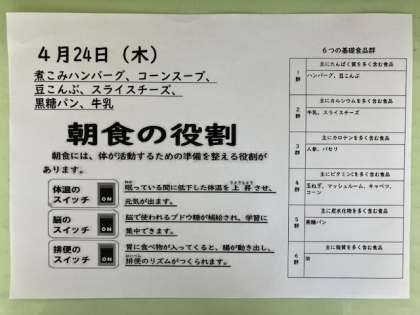 4月24日（木）
煮こみハンバーグ、コーンスープ、
豆こんぶ、スライスチーズ、
黒糖パン、牛乳
朝食の役割
朝食には、体が活動するための準備を整える役割が
あります。
体温の
スイッチ
ON
眠っている間に低下した体温を上昇させ、
元気が出ます。
脳の
スイッチ
ON
脳で使われるブドウ糖が補給され、学習に
集中できます。
排便の
スイッチ
ON
胃に食べ物が入ってくると、腸が動き出し、
排便のリズムがつくられます。
6つの基礎食品群
1群
主にたんぱく質を多く含む食品
ハンバーグ、豆こんぶ
2群
主にカルシウムを多く含む食品
牛乳、スライスチーズ
3群
主にカロテンを多く含む食品
人参、パセリ
4群
主にビタミンCを多く含む食品
玉ねぎ、マッシュルーム、キャベツ、
コーン
5群
主に炭水化物を多く含む食品
黒糖パン
6群
主に脂質を多く含む食品
油